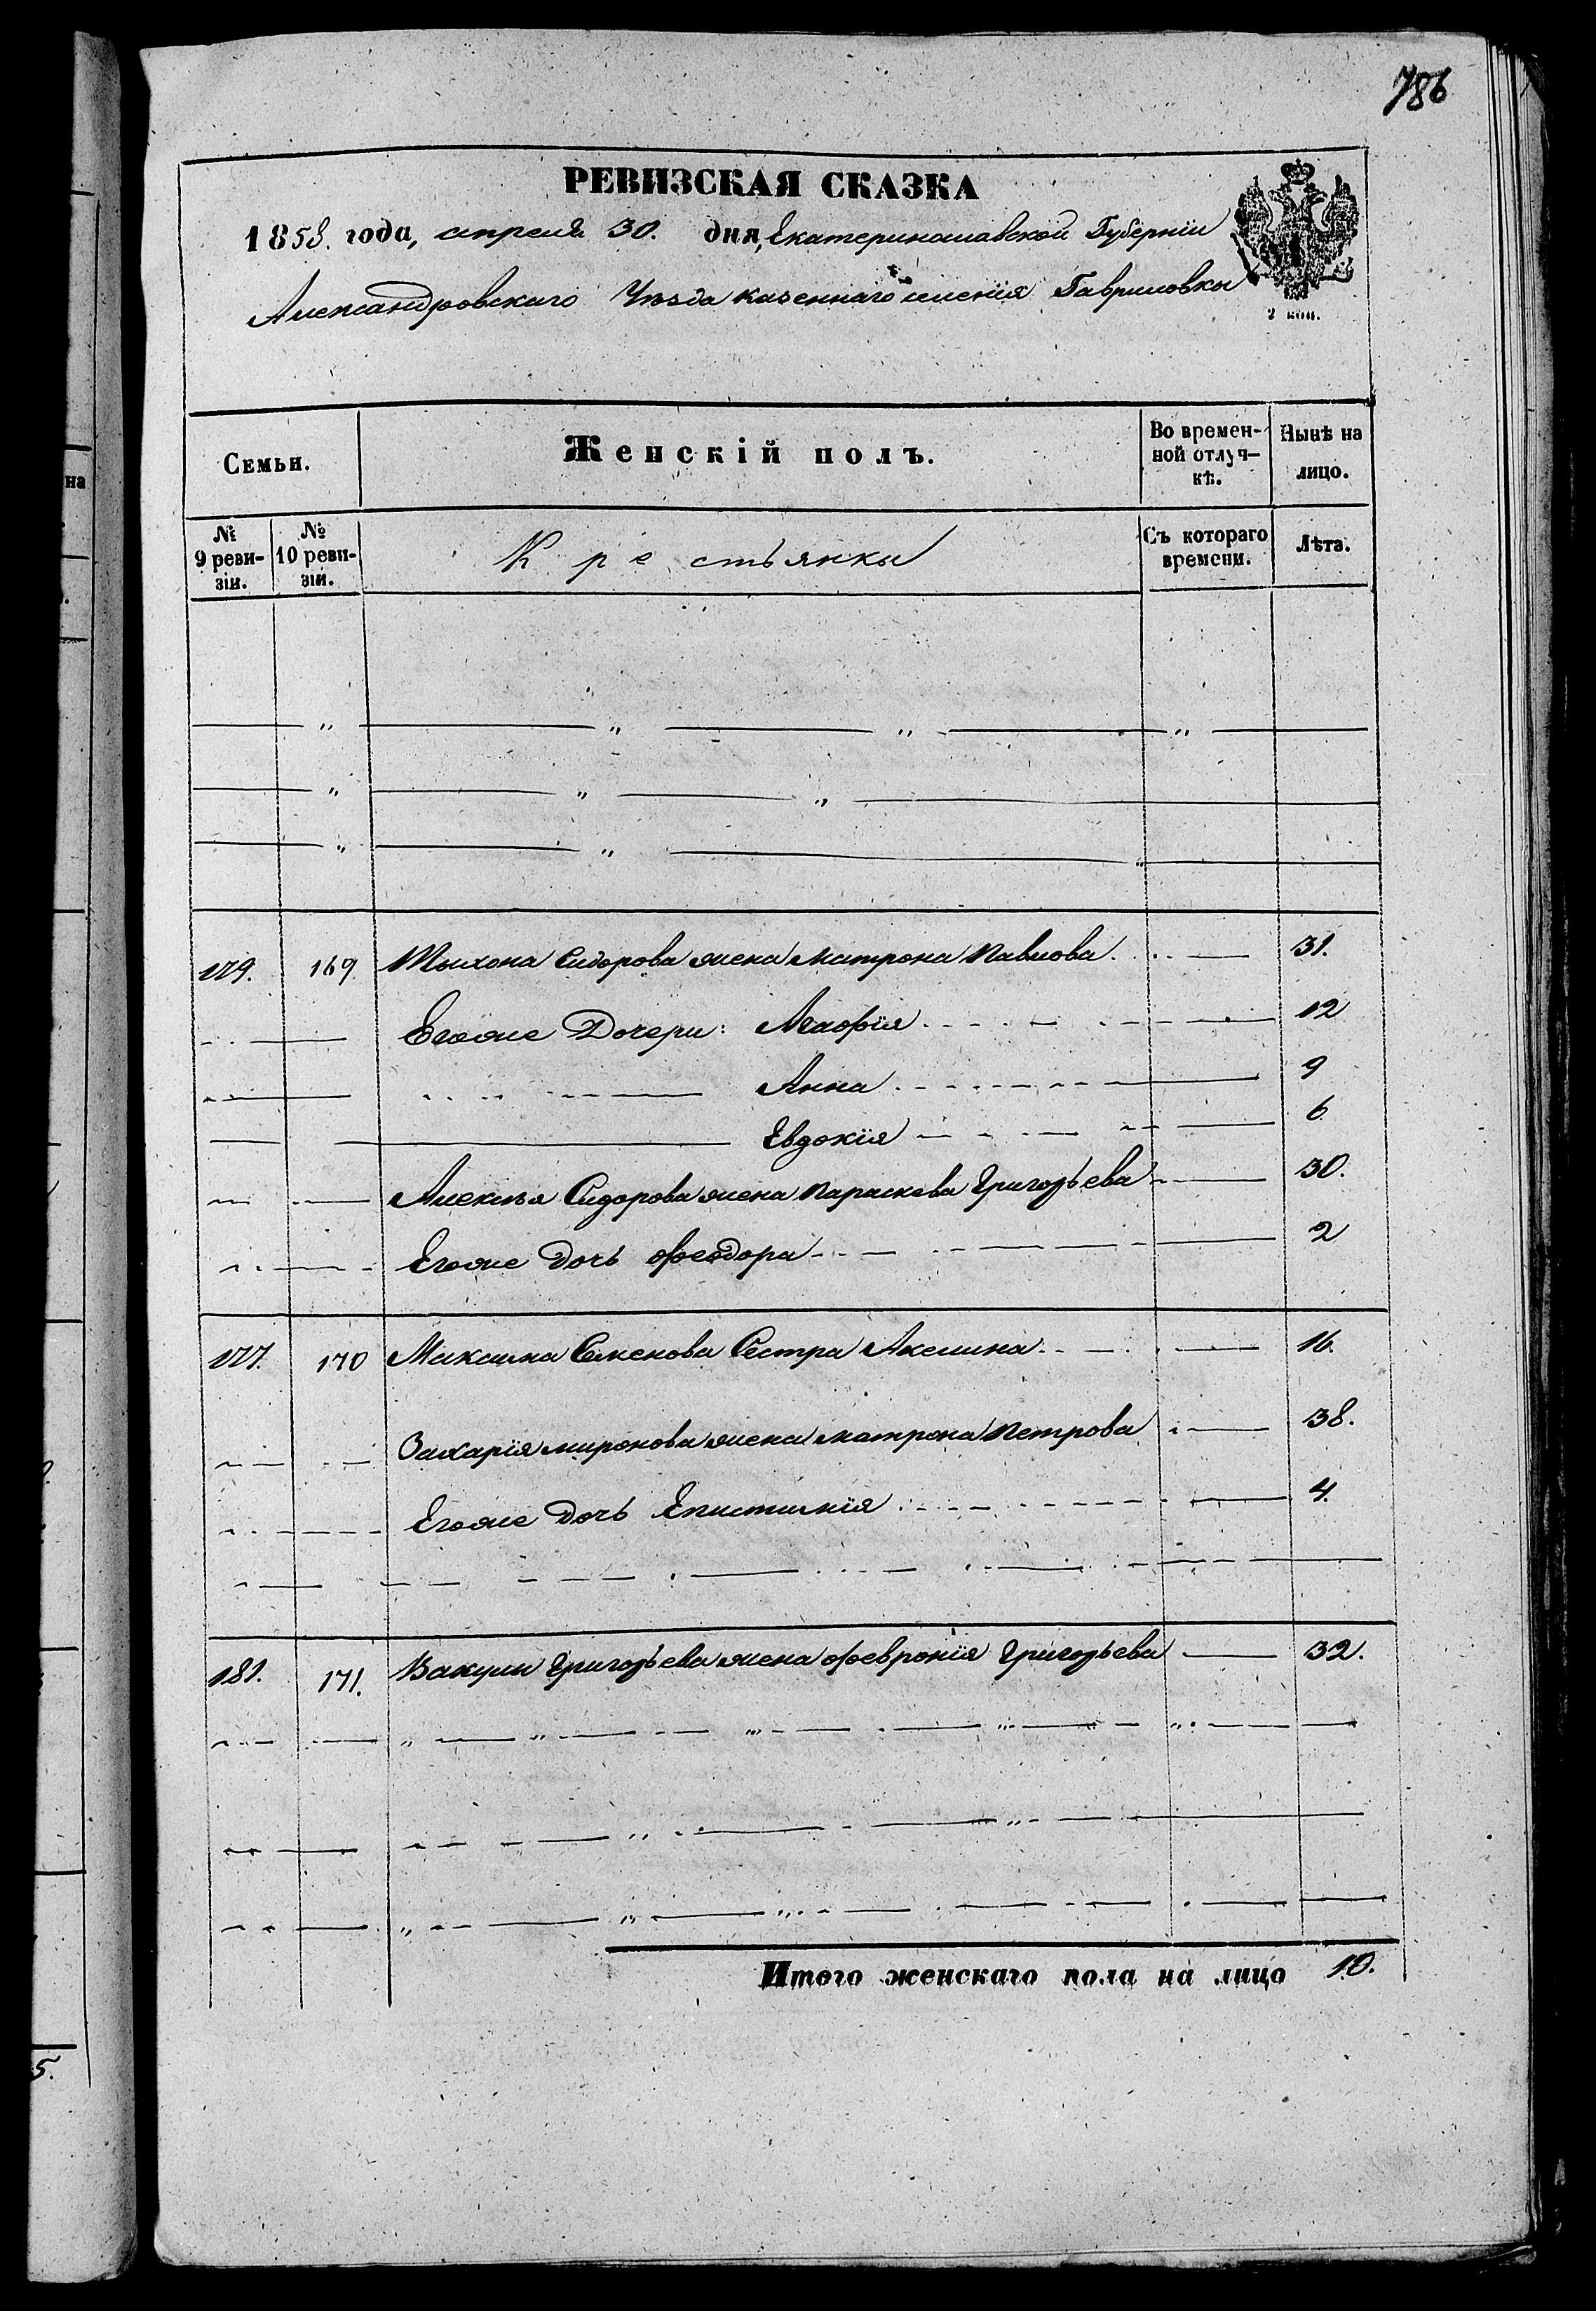 786
РЕВИЗСКАЯ СКАЗКА
1858. года, апреля 30. дня, Екатеринославской Губерніи
Александровскаго Уѣзда казеннаго имѣнія Гавриловки
2 коп.
Семьи. Женскій полъ. Во времен-ной отлуч-кѣ. Нынѣ на лицо.
№ 9 реви-зіи. № 10 реви-зіи. Крестьянки Съ котораго времени. Лѣта.
179. 169 Тихона Сидорова жена Матрона Павлова. 31.
Егоже Дочери: Агафія 12
Анна 9
Евдокія 6
Алексѣя Сидорова жена Параскева Григорьева 30.
Егоже Дочь Феодора 2
177. 170 Максима Семенова Сестра Акилина 16.
Захарія Миронова жена Матрона Петрова 38.
Егоже Дочь Епистимія 4.
181. 171. Вакулы Григорьева жена Февронія Григорьева 32.
Итого женскаго пола на лицо 10.
на
5.